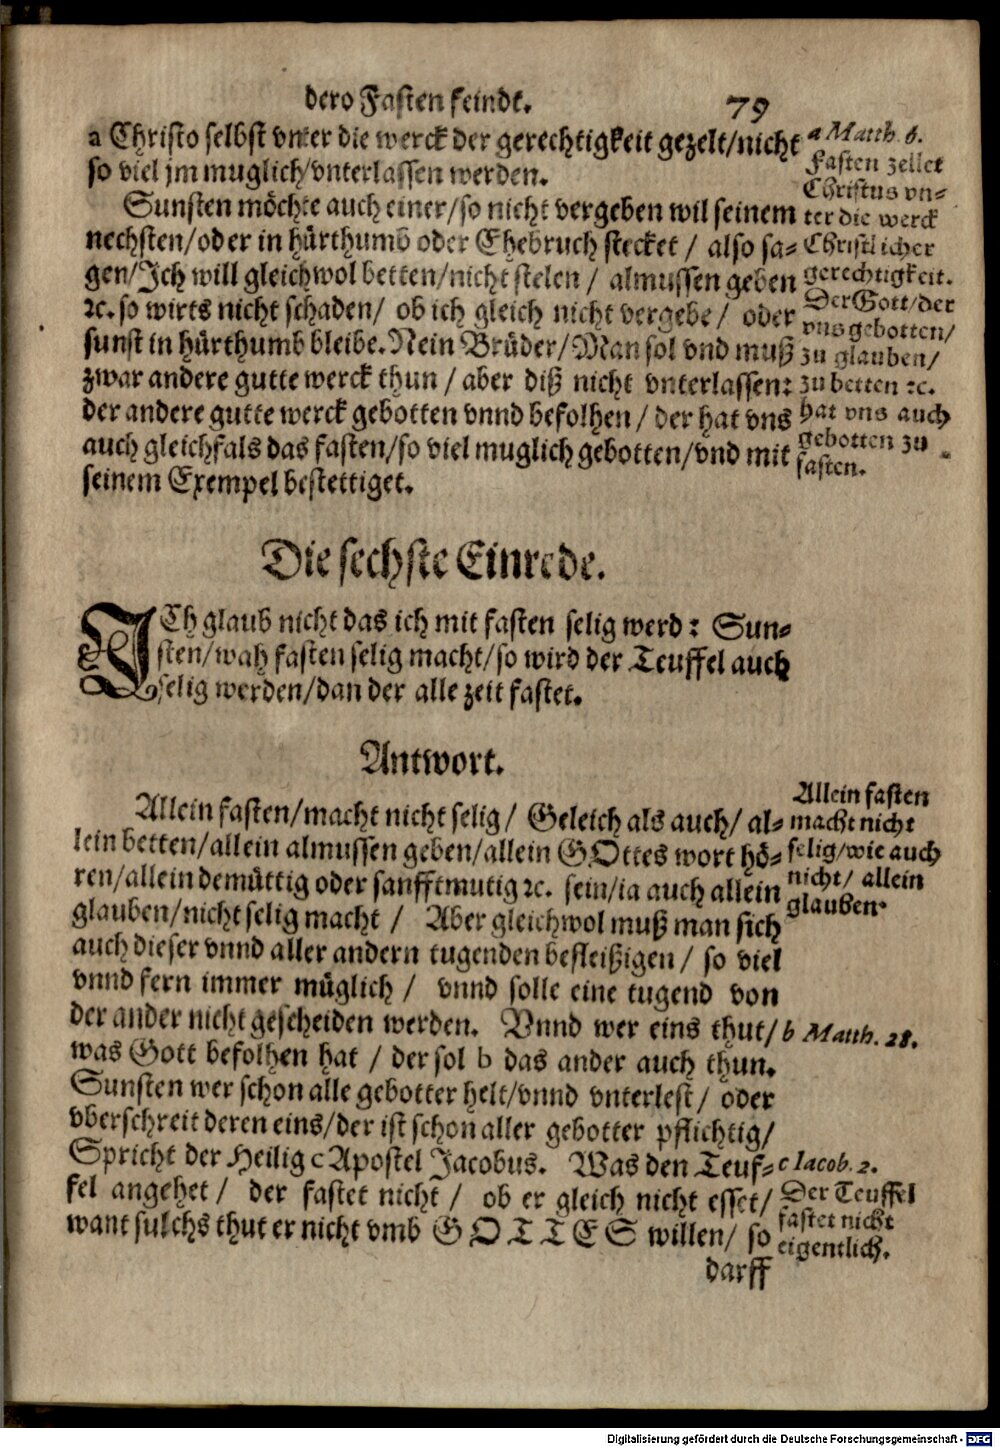 dero Fasten feindt. 79
a Christo selbst vnter die werck der gerechtigkeit gezelt/nicht
so viel jm muglich/vnterlassen werden.
Sunsten möchte auch einer/so nicht vergeben wil seinem
nechsten/oder in hürthumb oder Ehebruch stecket / also sa-
gen/Ich will gleichwol betten/nicht stelen / almussen geben
ꝛc. so wirts nicht schaden/ ob ich gleich nicht vergebe / oder
sunst in hürthumb bleibe. Nein Brüder/Man sol vnd muß
zwar andere gutte werck thun / aber diß nicht vnterlassen:
der andere gutte werck gebotten vnnd befolhen / der hat vns
auch gleichfals das fasten/so viel muglich gebotten/vnd mit
seinem Exempel bestettiget.
a Matth. 6.
Fasten zellet
Christus vn-
ter die werck
Christlicher
gerechtigkeit.
Der Gott/der
vns gebotten/
zu glauben/
zu betten ꝛc.
hat vns auch
gebotten zu
fasten.
Die sechste Einrede.
ICh glaub nicht das ich mit fasten selig werd: Sun-
sten/wah fasten selig macht/so wird der Teuffel auch
selig werden/dan der alle zeit fastet.
Antwort.
Allein fasten/macht nicht selig / Geleich als auch/ al-
lein betten/allein almussen geben/allein GOttes wort hö-
ren/allein demüttig oder sanfftmutig ꝛc. sein/ia auch allein
glauben/nicht selig macht / Aber gleichwol muß man sich
auch dieser vnnd aller andern tugenden befleißigen / so viel
vnnd fern immer müglich / vnnd solle eine tugend von
der ander nicht gescheiden werden. Vnnd wer eins thut/
was Gott befolhen hat / der sol b das ander auch thun.
Sunsten wer schon alle gebotter helt/vnnd vnterlest / oder
vberschreit deren eins/der ist schon aller gebotter pflichtig/
Spricht der Heilig c Apostel Jacobus. Was den Teuf-
fel angehet / der fastet nicht / ob er gleich nicht esset/
want sulchs thut er nicht vmb GOTTES willen/ so
darff
Allein fasten
macht nicht
selig/wie auch
nicht/ allein
glauben.
b Matth. 28.
c Iacob. 2.
Der Teuffel
fastet nicht
eigentlich.
Digitalisierung gefördert durch die Deutsche Forschungsgemeinschaft - DFG